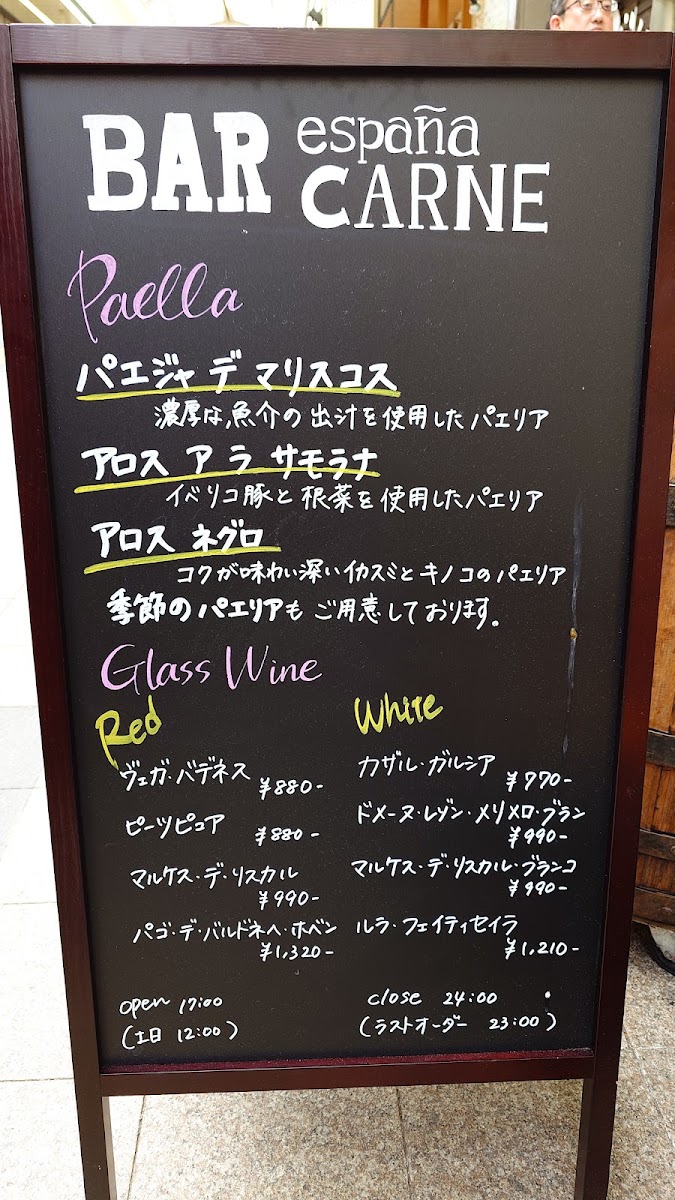 BAR españa CARNE
Paella
パエジャ デ マリスコス
濃厚な魚介の出汁を使用したパエリア
アロス ア ラ サモラナ
イベリコ豚と根菜を使用したパエリア
アロス ネグロ
コクが味わい深いイカスミとキノコのパエリア
季節のパエリアもご用意しております。
Glass Wine
Red
ヴェガ・バデネス
¥880-
ピーツピュア
¥880-
マルケス・デ・リスカル
¥990-
パゴ・デ・バルドネヘ・ホベン
¥1,320-
White
カザル・ガルシア
¥770-
ドメーヌ・レゾン・メリメロ・ブラン
¥990-
マルケス・デ・リスカル・ブランコ
¥990-
ルラ・フェイティセイラ
¥1,210-
open 17:00
(土日 12:00)
close 24:00
(ラストオーダー 23:00)